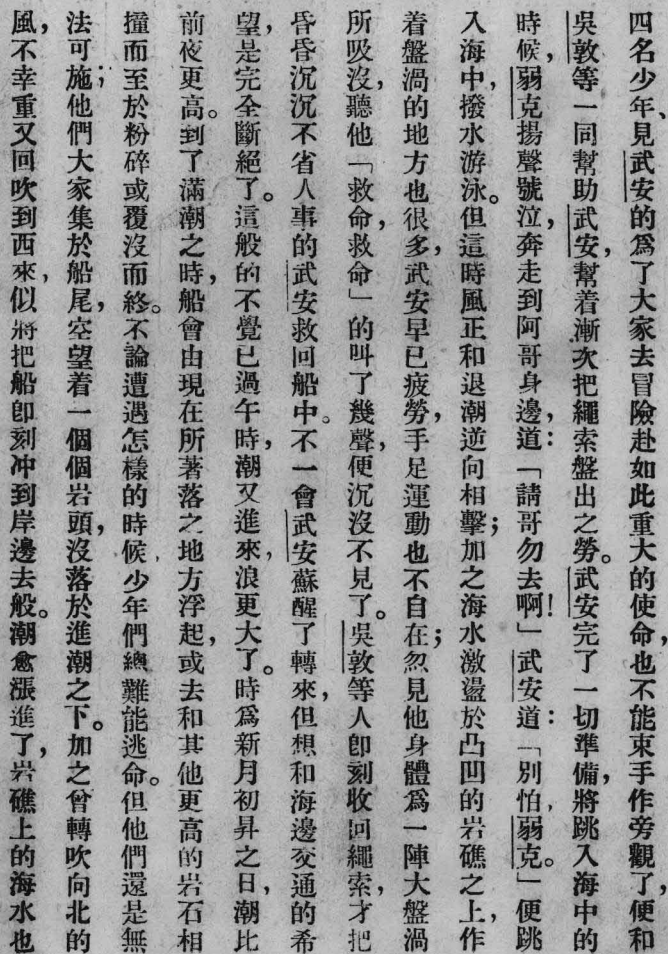 四名少年、見武安的爲了大家去冒險赴如此重大的使命，也不能束手作旁觀了，便和
吳敦等一同幫助武安，幫着漸次把繩索盤出之勞。武安完了一切準備，將跳入海中的
時候，弱克揚聲號泣，奔走到阿哥身邊，道：「請哥勿去啊！」武安道：「別怕，弱克。」便跳
入海中，撥水游泳。但這時風正和退潮逆向相擊；加之海水激盪於凸凹的岩礁之上，作
着盤渦的地方也很多，武安早已疲勞，手足運動也不自在；忽見他身體爲一陣大盤渦
所吸沒，聽他「救命，救命」的叫了幾聲，便沉沒不見了。吳敦等人卽刻收回繩索，才把
昏昏沉沉不省人事的武安救回船中。不一會武安蘇醒了轉來，但想和海邊交通的希
望，是完全斷絕了。這般的不覺已過午時，潮又進來，浪更大了。時爲新月初昇之日，潮比
前夜更高。到了滿潮之時，船會由現在所著落之地方浮起，或去和其他更高的岩石相
撞而至於粉碎或覆沒而終。不論遭遇怎樣的時候，少年們總難能逃命。但他們還是無
法可施；他們大家集於船尾，空望着一個個岩頭，沒落於進潮之下。加之曾轉吹向北的
風，不幸重又回吹到西來，似將把船卽刻冲到岸邊去般。潮愈漲進了，岩礁上的海水也